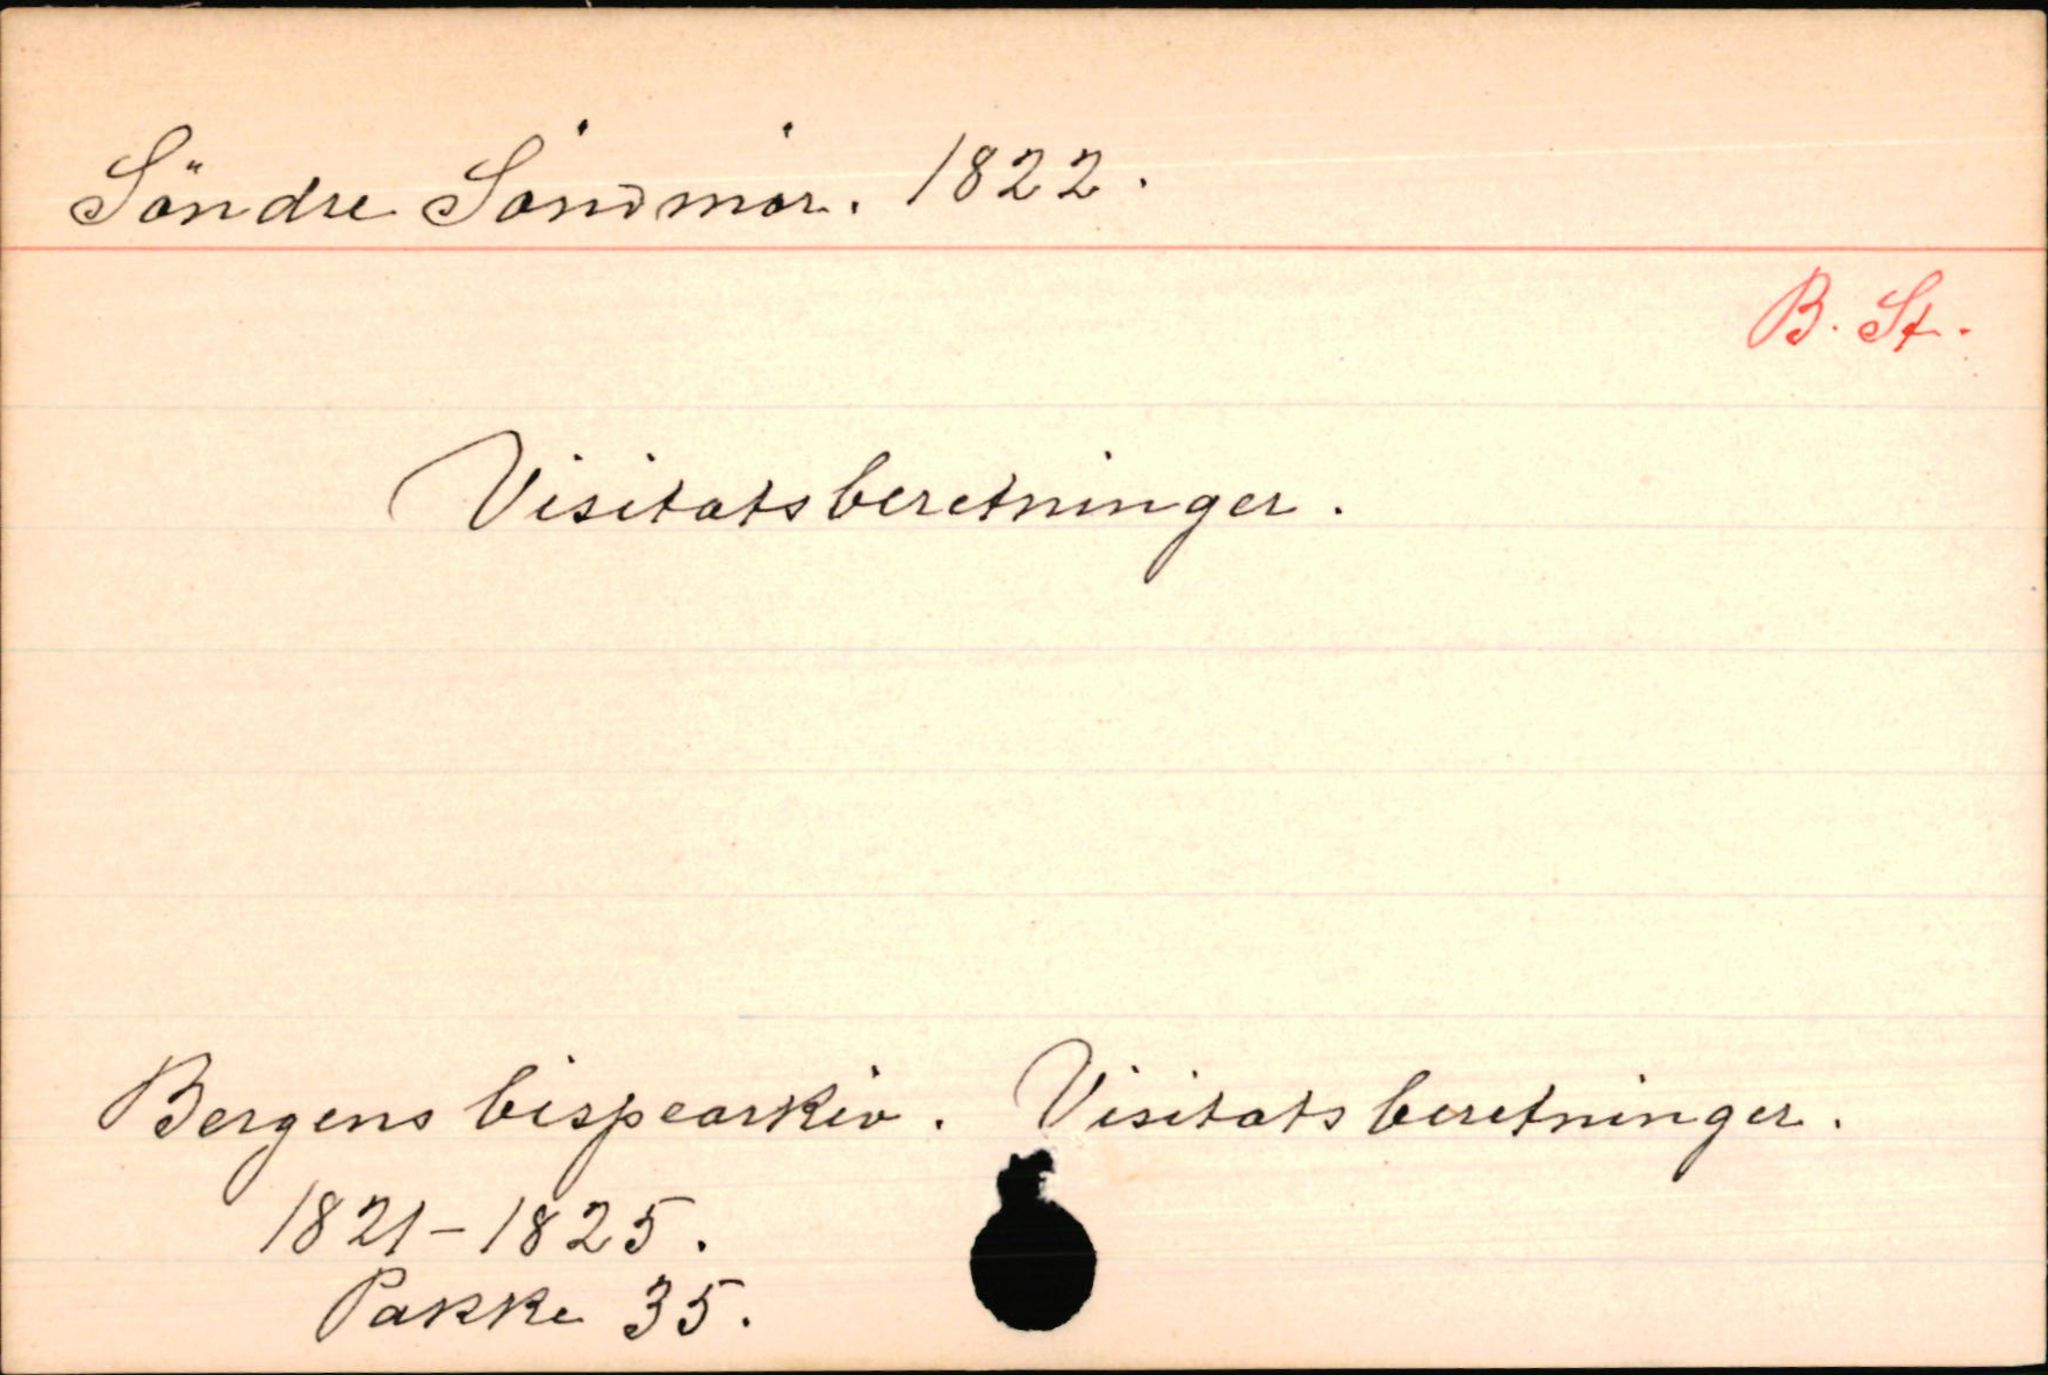 Söndre Söndmör. 1822.
B. St.
Visitatsberetninger.
Bergens bispearkiv. Visitatsberetninger.
1821-1825.
Pakke 35.